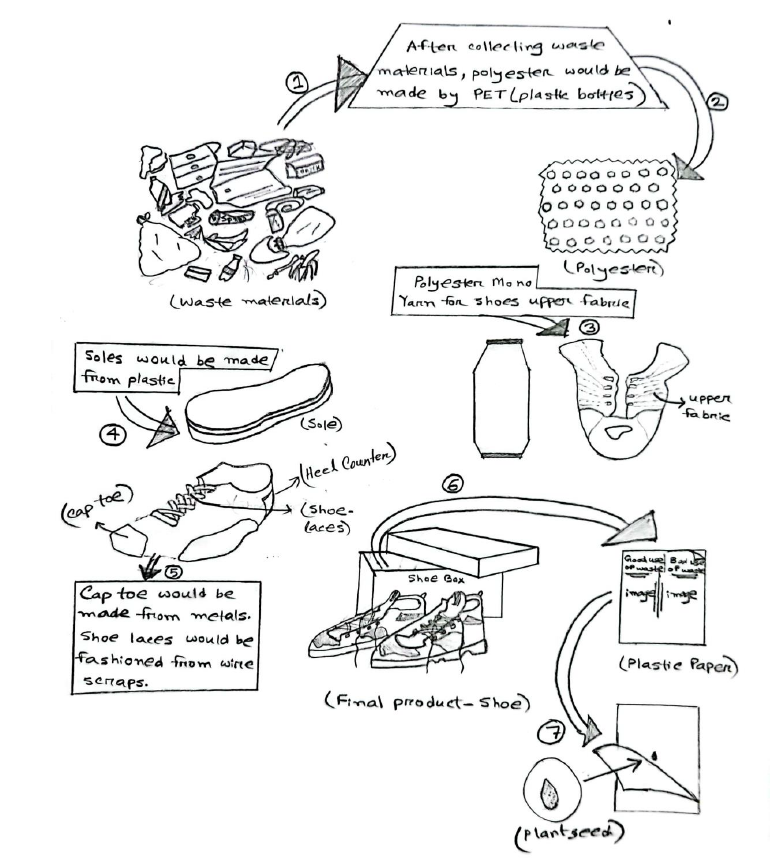 1
After collecting waste
materials, polyester would be
made by PET (plastic bottles)
2
(Waste materials)
(Polyester)
Polyester Mono
Yarn for shoes upper fabric
3
upper
fabric
Soles would be made
from plastic
4
(Sole)
(Heel Counter)
(cap toe)
(Shoe-
laces)
5
Cap toe would be
made from metals.
Shoe laces would be
fashioned from wire
scraps.
6
Shoe Box
(Final product - Shoe)
Good use
of waste
image
Bad use
of waste
image
(Plastic Paper)
7
(plantseed)